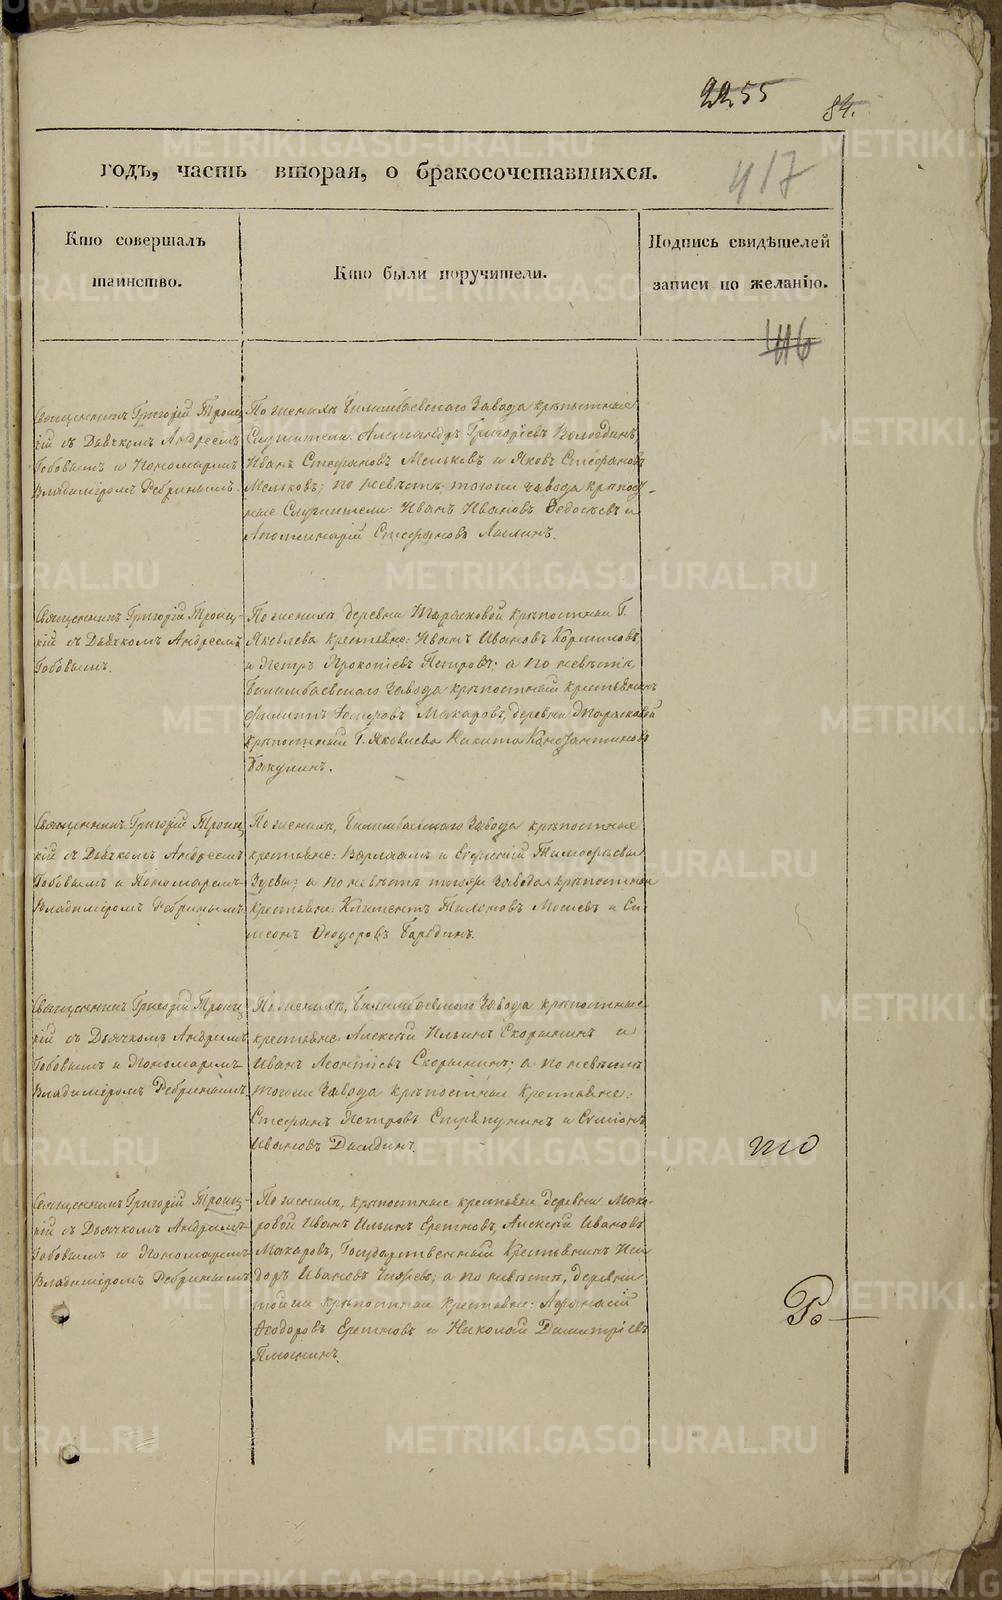 2255
84.
годъ, часть вторая, о бракосочетавшихся.
417
Кто совершалъ
таинство.
Кто были поручители.
Подпись свидѣтелей
записи по желанію.
416
Священникъ Григорій Троиц-
кій съ Дьячкомъ Андреемъ
Бобовымъ и Пономаремъ
Владиміромъ Ребринымъ.
По женихѣ Билимбаевскаго Завода крѣпостные
Служители: Александръ Григорьевъ
Иванъ Стефановъ Мельковъ и Яковъ Стефановъ
Мельковъ; по невѣстѣ: тогоже завода крѣпост-
ные Служители: Иванъ Ивановъ Ѳедосѣевъ и
Стефановъ
Священникъ Григорій Троиц-
кій съ Дьячкомъ Андреемъ
Бобовымъ.
По женихѣ деревни Тарасковой крѣпостные Г.
Яковлева крестьяне: Иванъ Ивановъ Кормиловъ
и Петръ Прокопіевъ Петровъ; а по невѣстѣ
Билимбаевскаго Завода крѣпостный крестьянинъ
Филиппъ Макаровъ, деревни Тарасковой
крѣпостный Г. Яковлева Никита Константиновъ
Бакунинъ.
Священникъ Григорій Троиц-
кій съ Дьячкомъ Андреемъ
Бобовымъ и Пономаремъ
Владиміромъ Ребринымъ.
По женихѣ, Билимбаевскаго Завода крѣпостные
крестьяне: Варлаамъ и Евфимій Тимофѣевы
Зуевы; а по невѣстѣ тогоже Завода крѣпостные
крестьяне: Климентъ Тихоновъ Мосѣевъ и Си-
меонъ Ѳеодоровъ Бородинъ.
Священникъ Григорій Троиц-
кій съ Дьячкомъ Андреемъ
Бобовымъ и Пономаремъ
Владиміромъ Ребринымъ.
По женихѣ, Билимбаевскаго Завода крѣпостные
крестьяне Алексѣй Ильинъ Скорынинъ и
Иванъ Леонтіевъ Скорынинъ; а по невѣстѣ
тогоже Завода крѣпостные крестьяне:
Стефанъ Петровъ Стряпунинъ и Сѵмеонъ
Ивановъ
Священникъ Григорій Троиц-
кій съ Дьячкомъ Андреемъ
Бобовымъ и Пономаремъ
Владиміромъ Ребринымъ
По женихѣ, крѣпостные крестьяне деревни Мака-
ровой Иванъ Ильинъ Еретновъ, Алексѣй Ивановъ
Макаровъ, Государственный Крестьянинъ Иси-
доръ Ивановъ а по невѣстѣ, деревни
тойже крѣпостные крестьяне: Аѳанасій
Ѳеодоровъ Еретновъ и Николай Димитріевъ
Плюснинъ.
METRIKI.GASO-URAL.RU